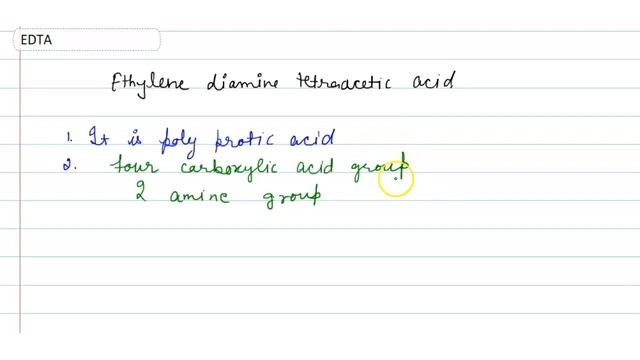 EDTA
Ethylene diamine tetraacetic acid
1. It is poly protic acid
2. four carboxylic acid group
2 amine group